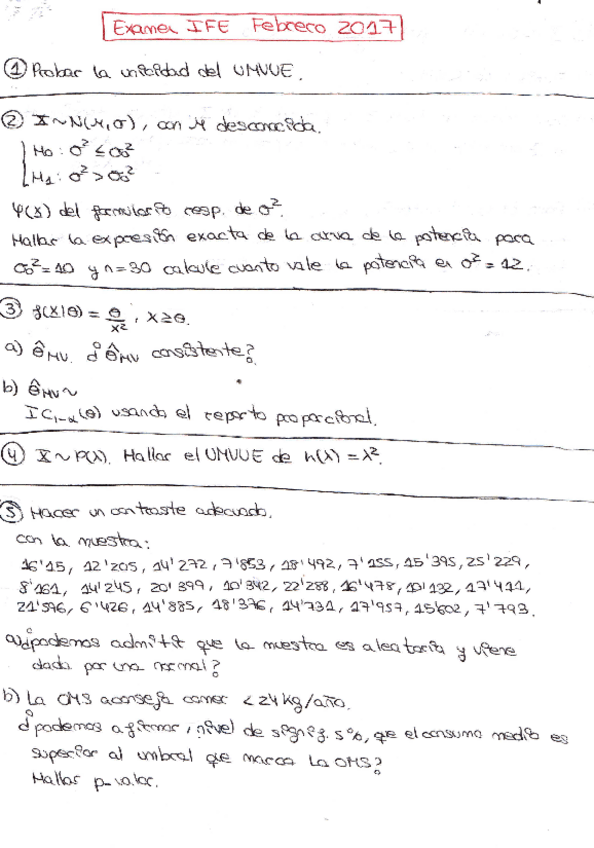 Examen IFE Febrero 2017
① Probar la unicidad del UMVUE.
② X ~ N(μ,σ), con μ desconocida.
H0 : σ² ≤ σ0²
H1 : σ² > σ0²
φ(x) del formulario resp. de σ².
Hallar la expresión exacta de la curva de la potencia para
σ0² = 10 y n = 30 calcule cuanto vale la potencia en σ² = 12.
③ f(x|θ) = θ/x² , x ≥ θ.
a) θ̂MV. ¿θ̂MV consistente?
b) θ̂MV ~
IC1-α(θ) usando el reparto proporcional.
④ X ~ P(λ). Hallar el UMVUE de h(λ) = λ².
⑤ Hacer un contraste adecuado.
con la muestra:
16'15, 12'205, 14'272, 7'853, 18'492, 7'155, 15'395, 25'229,
8'161, 14'245, 20'399, 10'342, 22'288, 16'478, 10'132, 17'411,
21'576, 6'426, 14'885, 18'376, 14'731, 17'957, 15'602, 7'793.
a) ¿podemos admitir que la muestra es aleatoria y viene
dada por una normal?
b) La OMS aconseja comer < 24 kg/año.
¿podemos afirmar, nivel de signif. 5%, que el consumo medio es
superior al umbral que marca la OMS?
Hallar p-valor.